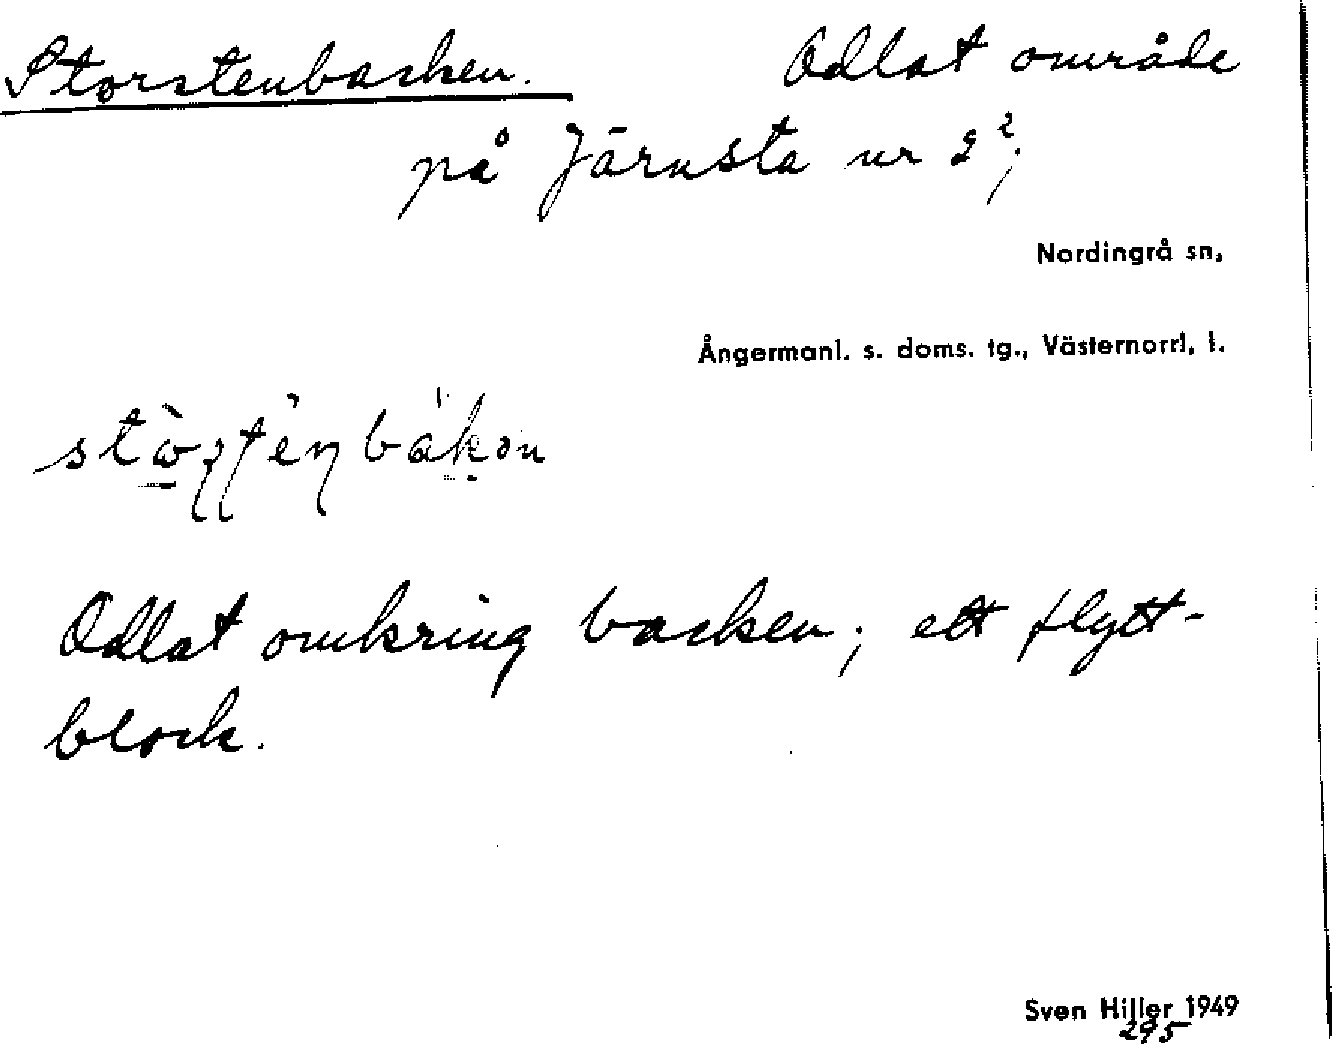 Storstenbacken. Odlat område
på Järnsta nr 2²;
Nordingrå sn,
Ångermanl. s. doms. tg., Västernorrl. l.
Odlat omkring backen; ett flytt-
block.
Sven Hiller 1949
295